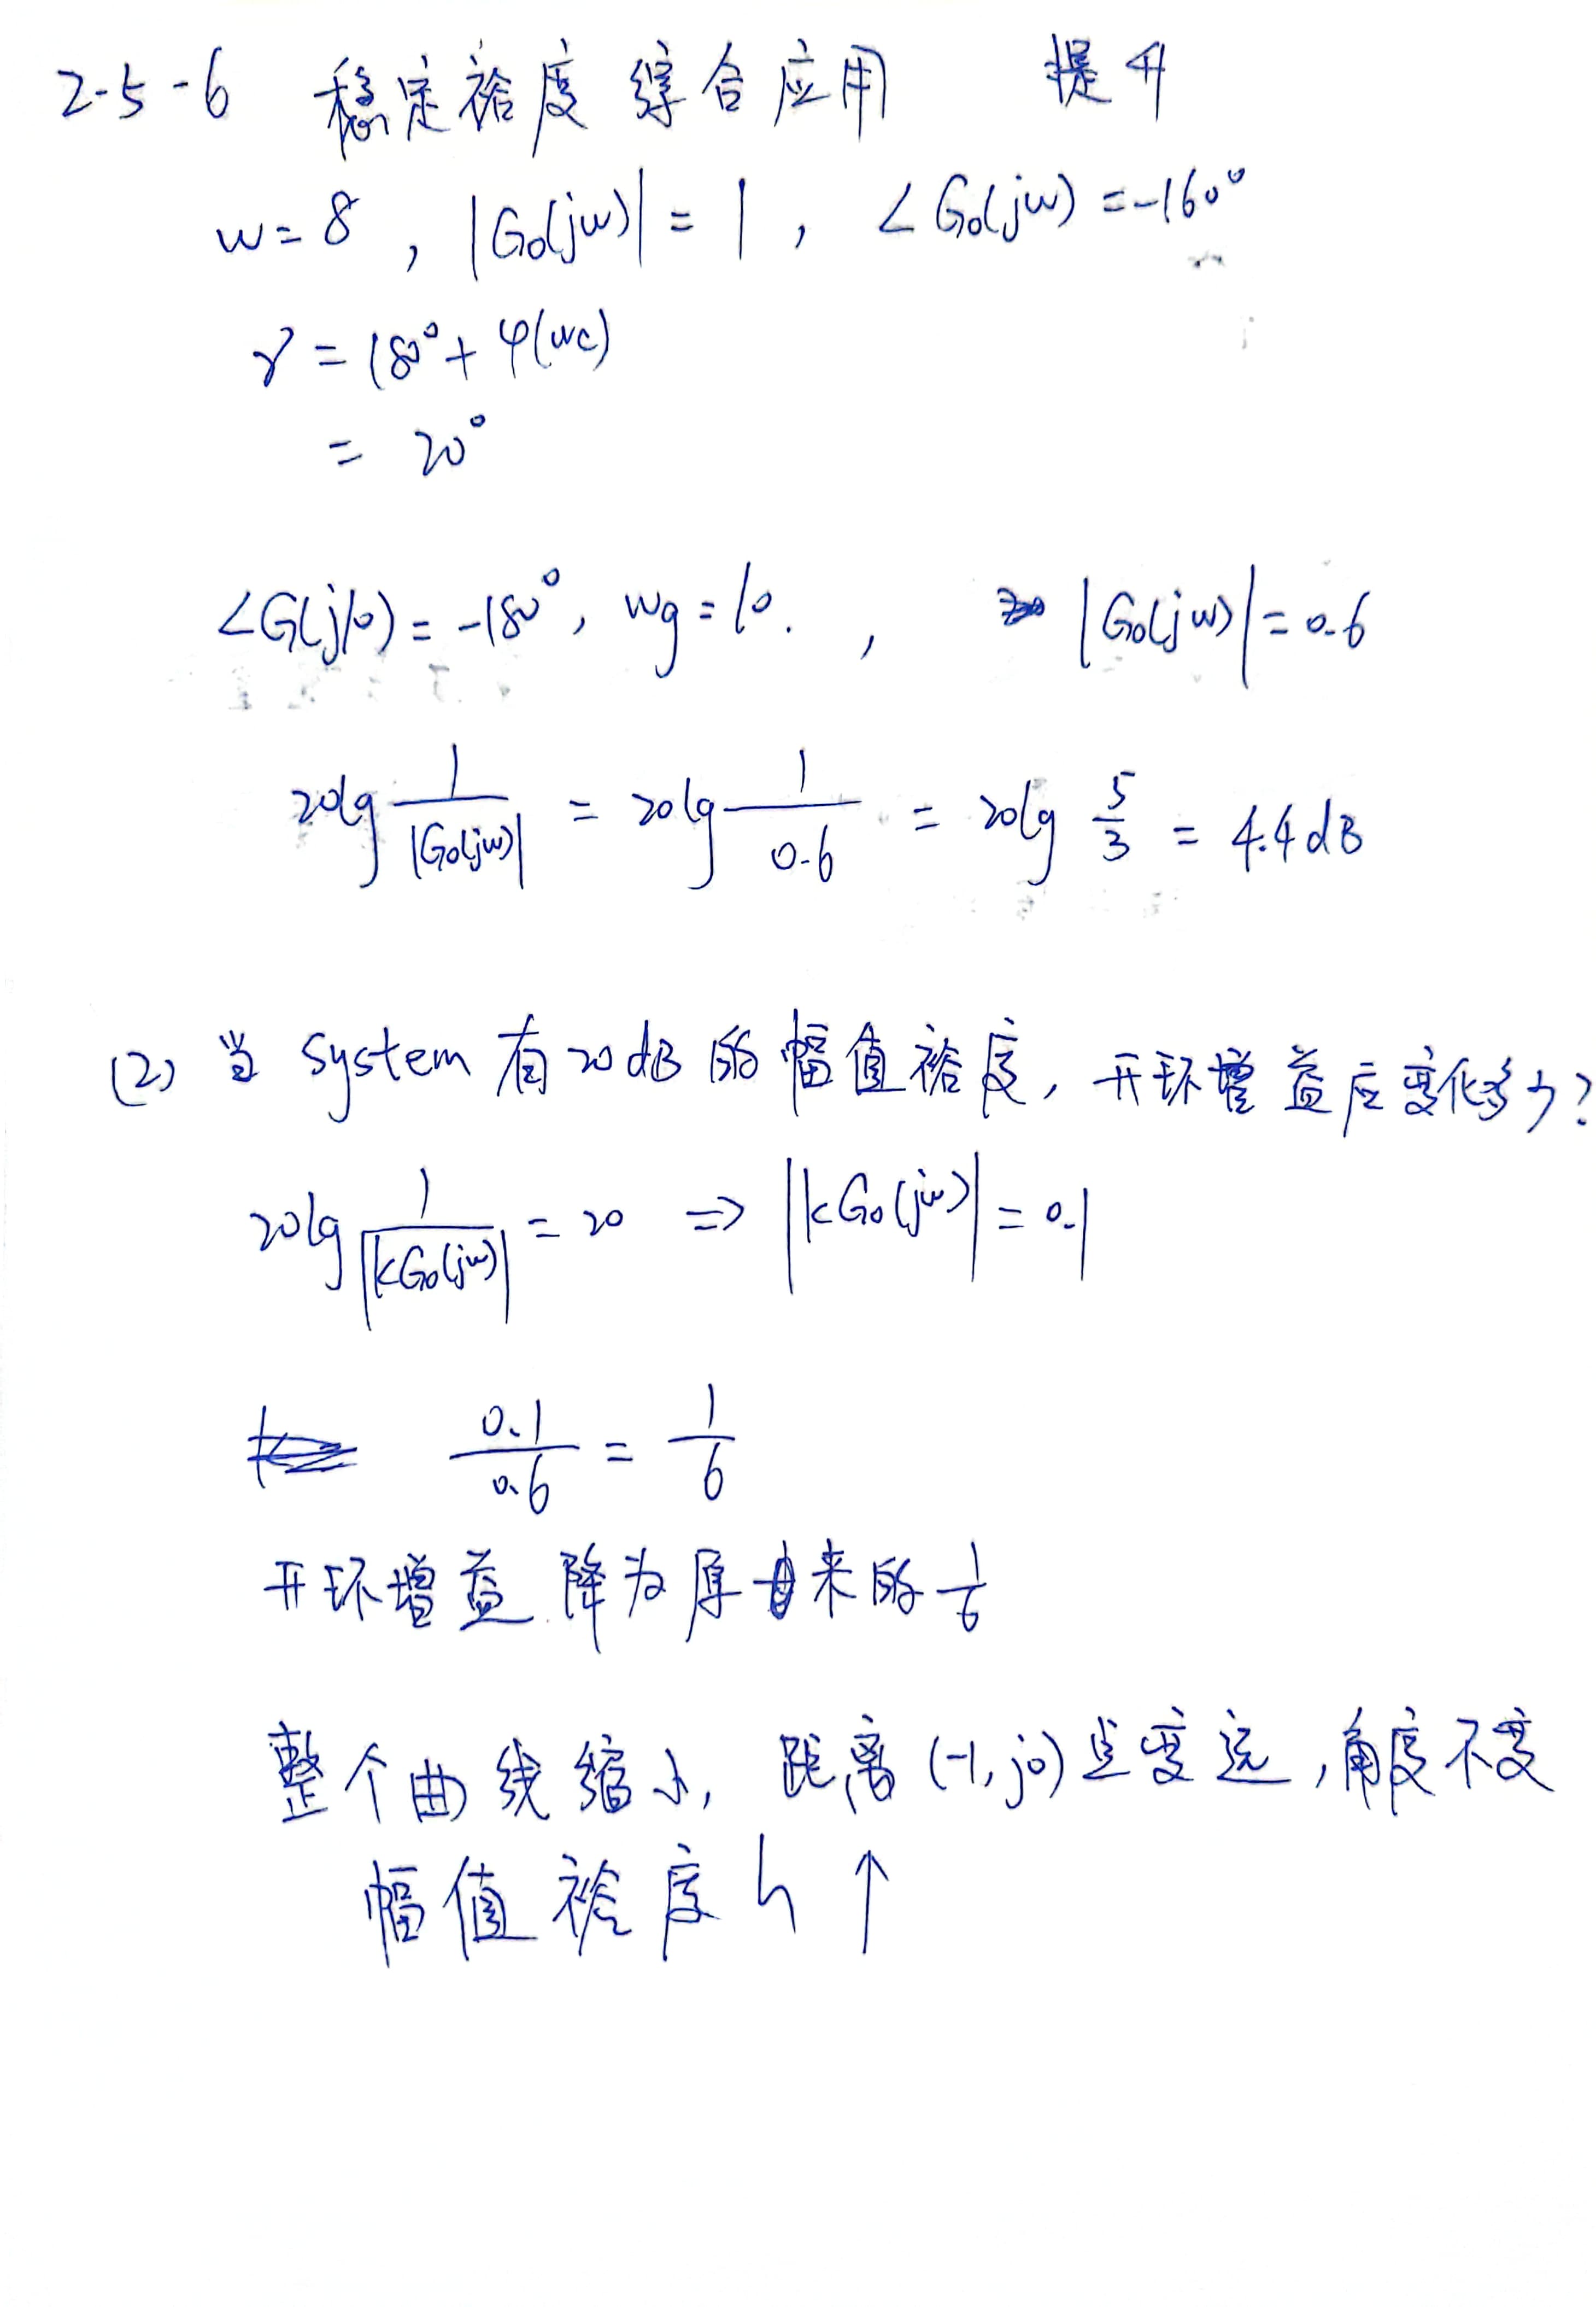 2-5-6 稳定裕度综合应用 提升
w=8, |G₀(jw)|=1, ∠G₀(jw)=-160°
γ=180°+φ(wc)
=20°
∠G(j10)=-180°, wg=10. , |G₀(jw)|=0.6
20lg 1/|G₀(jw)| = 20lg 1/0.6 = 20lg 5/3 = 4.4dB
(2) 当 system 有 20dB 的幅值裕度, 开环增益应变化多少?
20lg 1/|kG₀(jw)| = 20 => |kG₀(jw)|=0.1
0.1/0.6 = 1/6
开环增益降为原来的 1/6
整个曲线缩小, 距离(-1, j0)点变远, 角度不变
幅值裕度 h ↑